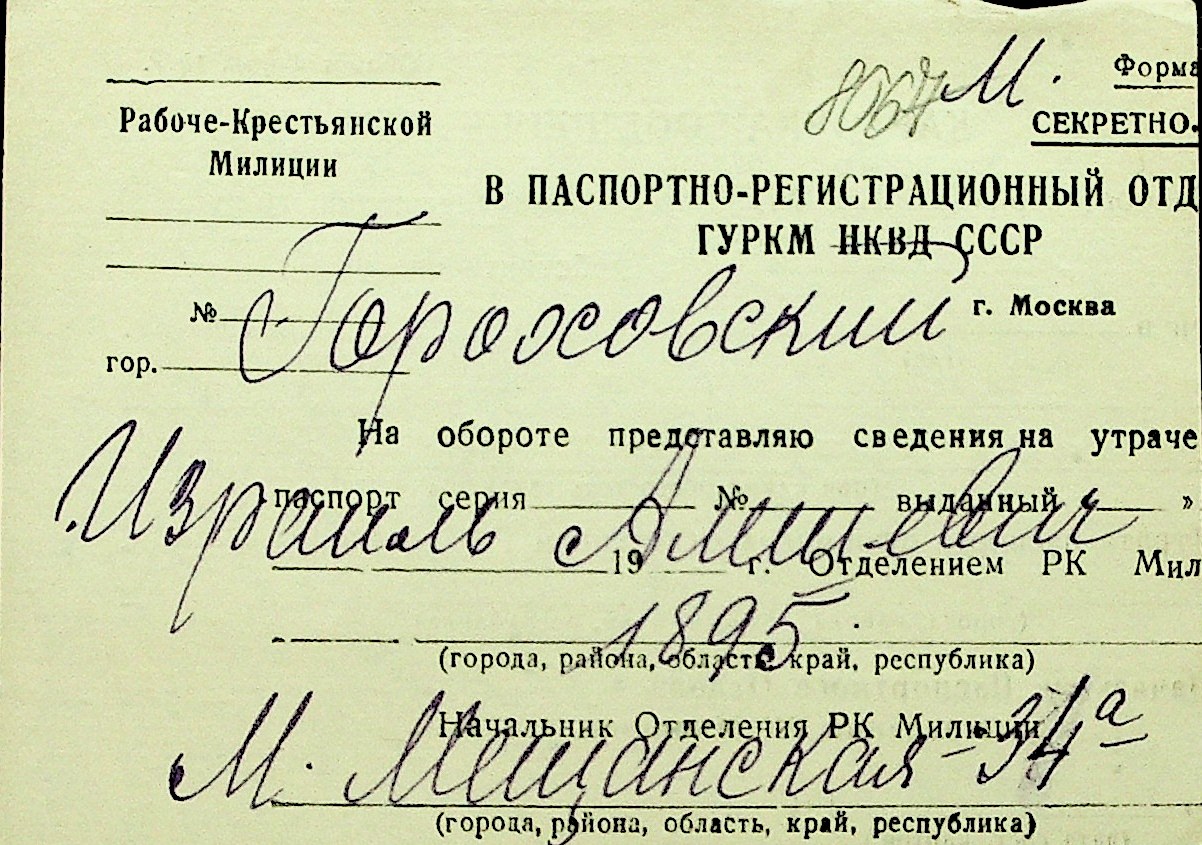 8067 М. Форма
Рабоче-Крестьянской
Милиции
СЕКРЕТНО.
В ПАСПОРТНО-РЕГИСТРАЦИОННЫЙ ОТД
ГУРКМ НКВД СССР
№ г. Москва
Гороховский
гор.
На обороте представляю сведения на утраче
паспорт серия № выданный »
Израиль
19 г. Отделением РК Мил
1895
(города, района, область, край, республика)
Начальник Отделения РК Милиции
М. Мещанская - 34а
(города, района, область, край, республика)